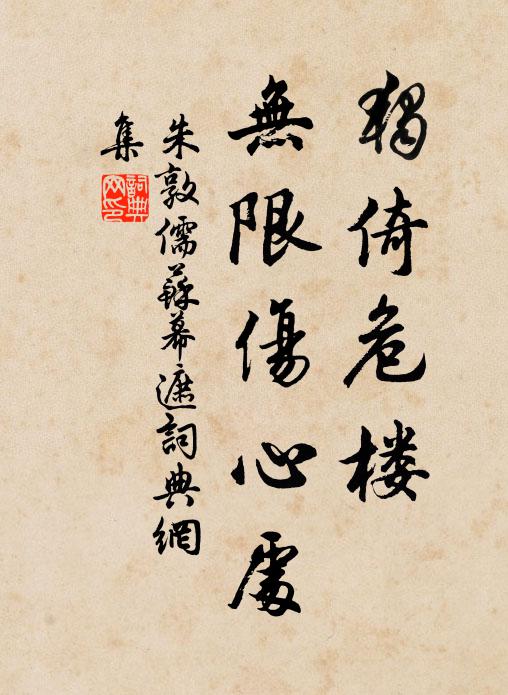 獨倚危楼
無限傷心處
朱敦儒蘇幕遮詞典網
集
詞典
网印